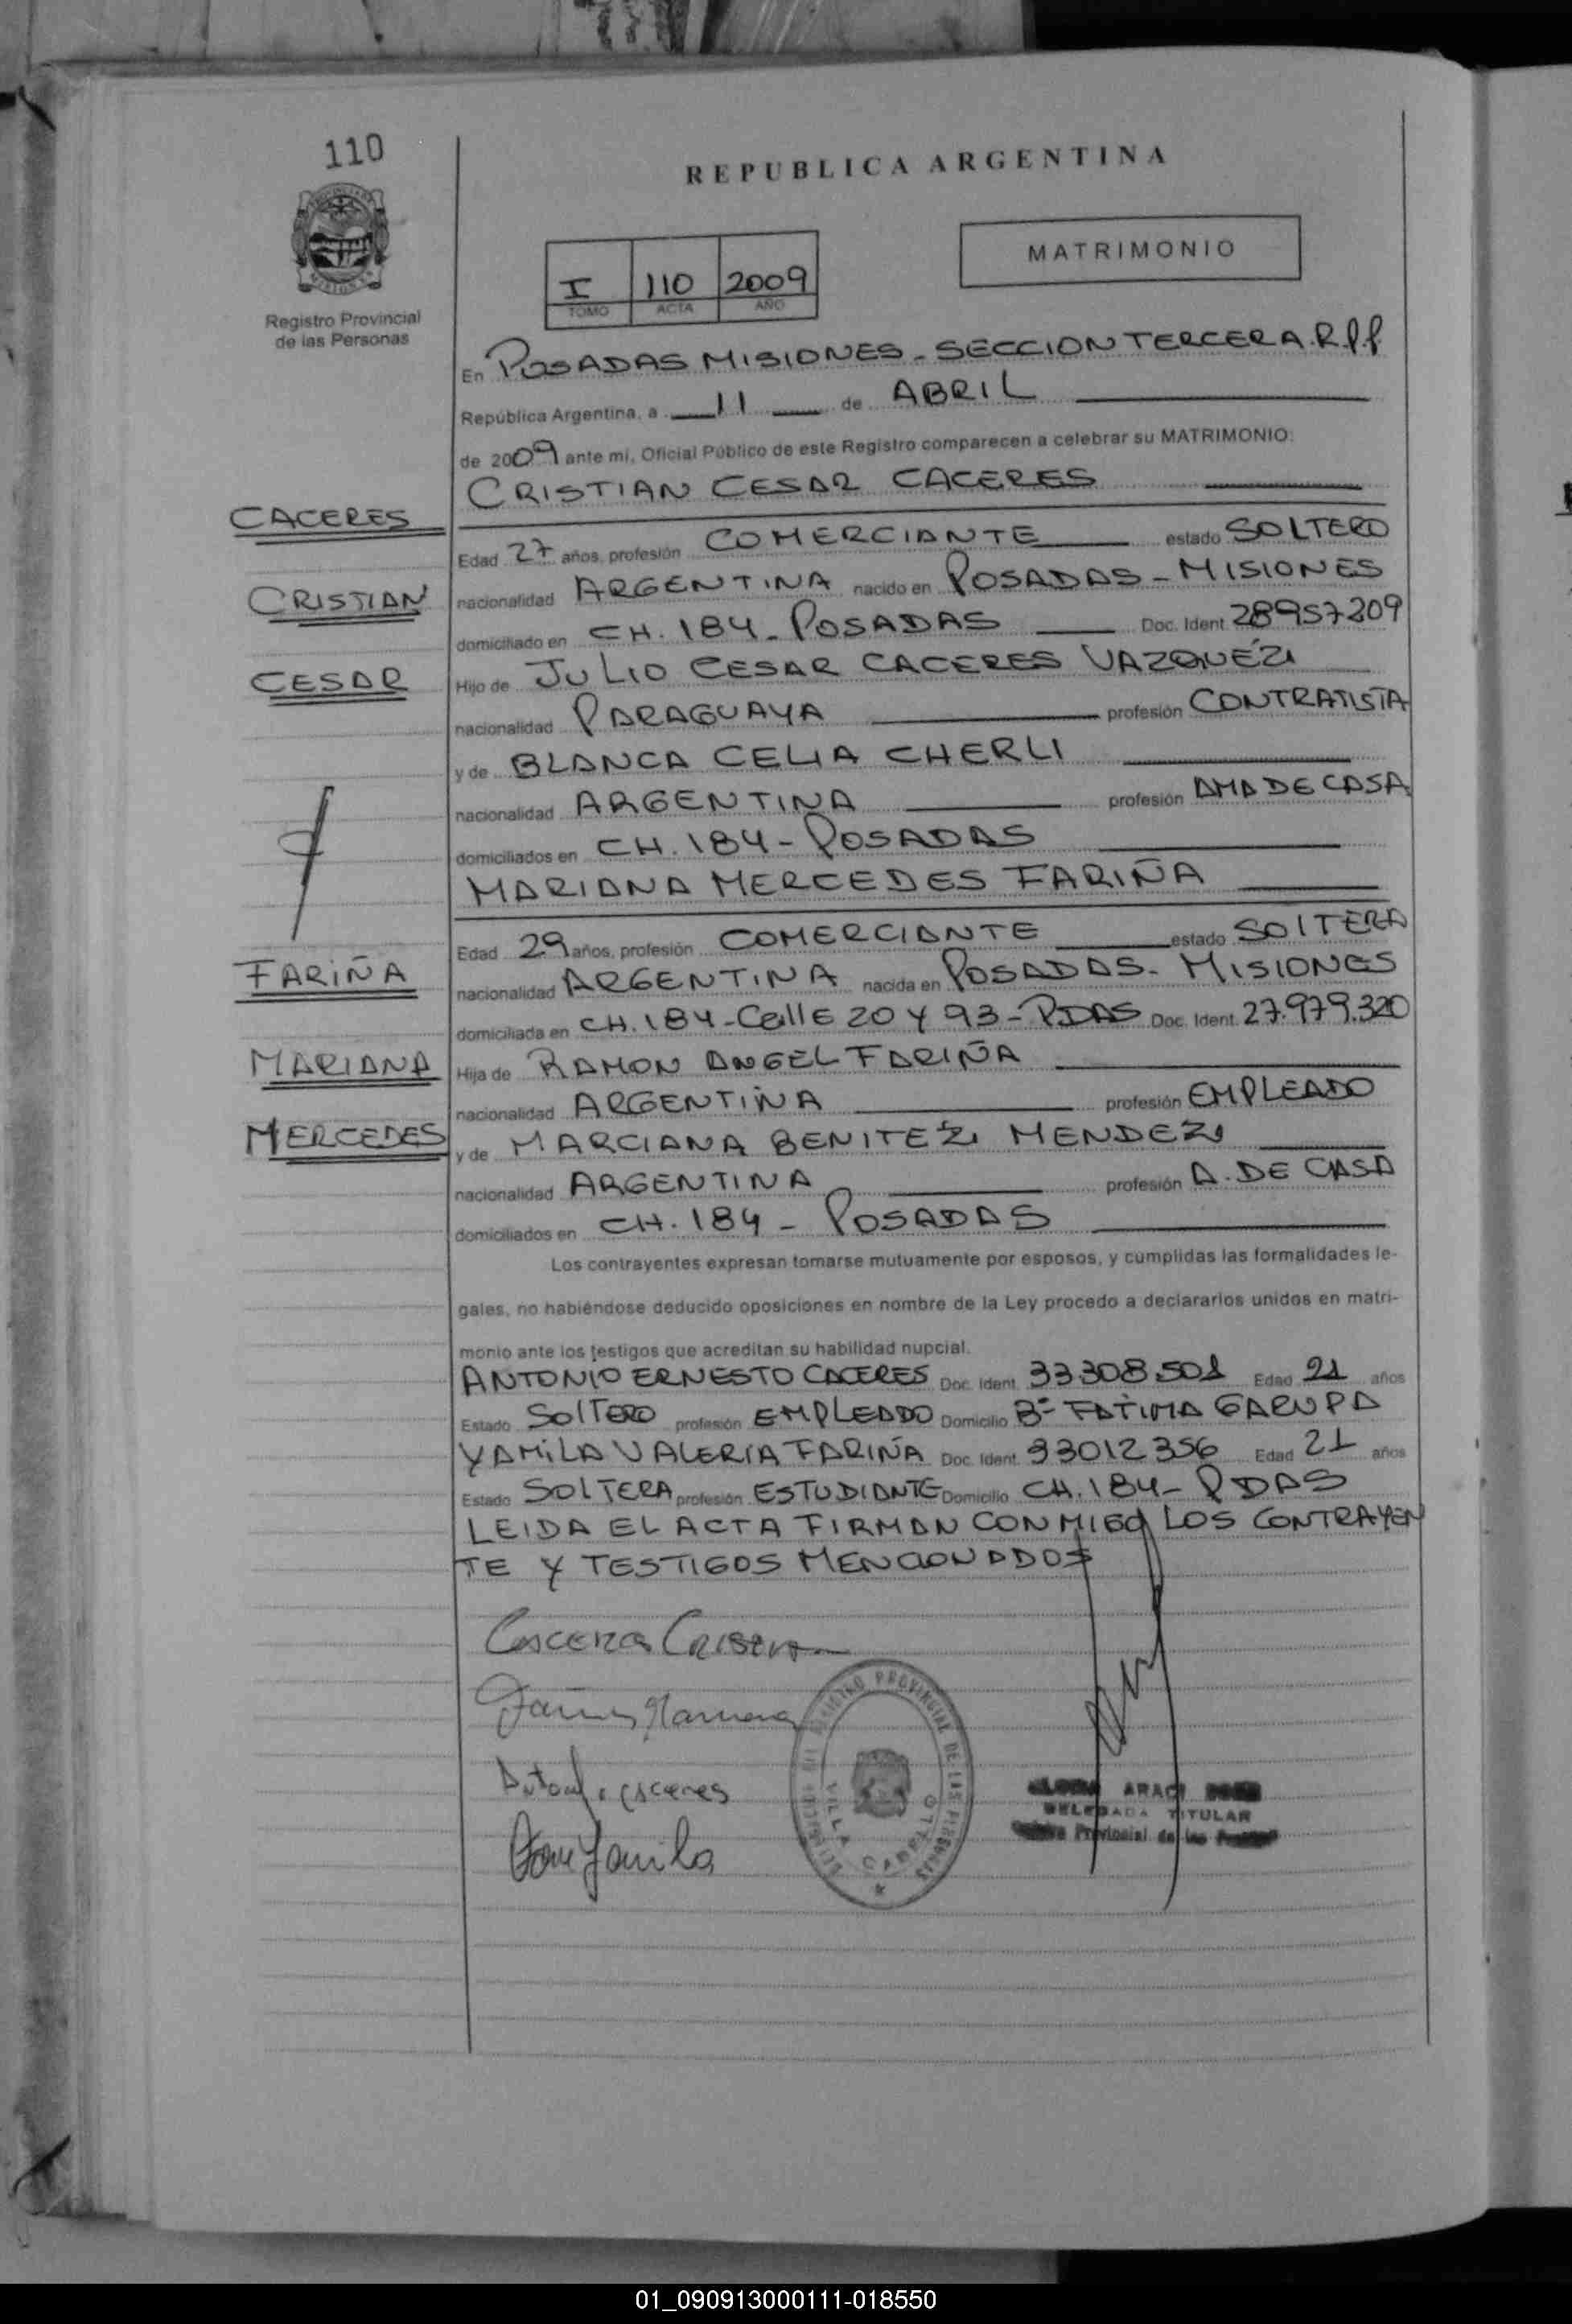 110
REPUBLICA ARGENTINA
MATRIMONIO
I 110 2009
TOMO ACTA AÑO
Registro Provincial
de las Personas
En POSADAS MISIONES - SECCION TERCERA.R.P.P.
República Argentina, a 11 de ABRIL
de 2009 ante mí, Oficial Público de este Registro comparecen a celebrar su MATRIMONIO:
CRISTIAN CESAR CACERES
CACERES
Edad 27 años, profesión COMERCIANTE estado SOLTERO
CRISTIAN
nacionalidad ARGENTINA nacido en POSADAS - MISIONES
domiciliado en CH. 184 - POSADAS Doc. Ident. 28957209
CESAR
Hijo de JULIO CESAR CACERES VAZQUEZ
nacionalidad PARAGUAYA profesión CONTRATISTA
y de BLANCA CELIA CHERLI
nacionalidad ARGENTINA profesión AMA DE CASA
domiciliados en CH. 184 - POSADAS
MARIANA MERCEDES FARIÑA
Edad 29 años, profesión COMERCIANTE estado SOLTERA
FARIÑA
nacionalidad ARGENTINA nacida en POSADAS - MISIONES
domiciliada en CH. 184 - CallE 20 Y 93 - PDAS Doc. Ident. 27.979.320
MARIANA
Hija de RAMON ANGEL FARIÑA
nacionalidad ARGENTINA profesión EMPLEADO
MERCEDES
y de MARCIANA BENITEZ MENDEZ
nacionalidad ARGENTINA profesión A. DE CASA
domiciliados en CH. 184 - POSADAS
Los contrayentes expresan tomarse mutuamente por esposos, y cumplidas las formalidades le-
gales, no habiéndose deducido oposiciones en nombre de la Ley procedo a declararlos unidos en matri-
monio ante los testigos que acreditan su habilidad nupcial.
ANTONIO ERNESTO CACERES Doc. Ident. 33.308.501 Edad 21 años
Estado SOLTERO profesión EMPLEADO Domicilio Bº FATIMA GARUPA
YAMILA VALERIA FARIÑA Doc. Ident. 33012356 Edad 21 años
Estado SOLTERA profesión ESTUDIANTE Domicilio CH. 184 - PDAS
LEIDA EL ACTA FIRMAN CONMIGO LOS CONTRAYEN
TE Y TESTIGOS MENCIONADOS
Caceres Cristian
Fariña Mariana
Antonio Caceres
Yamila
REGISTRO PROVINCIAL DE LAS PERSONAS
VILLA CABELLO
ARACI
DELEGADA TITULAR
Provincial de las
01_090913000111-018550